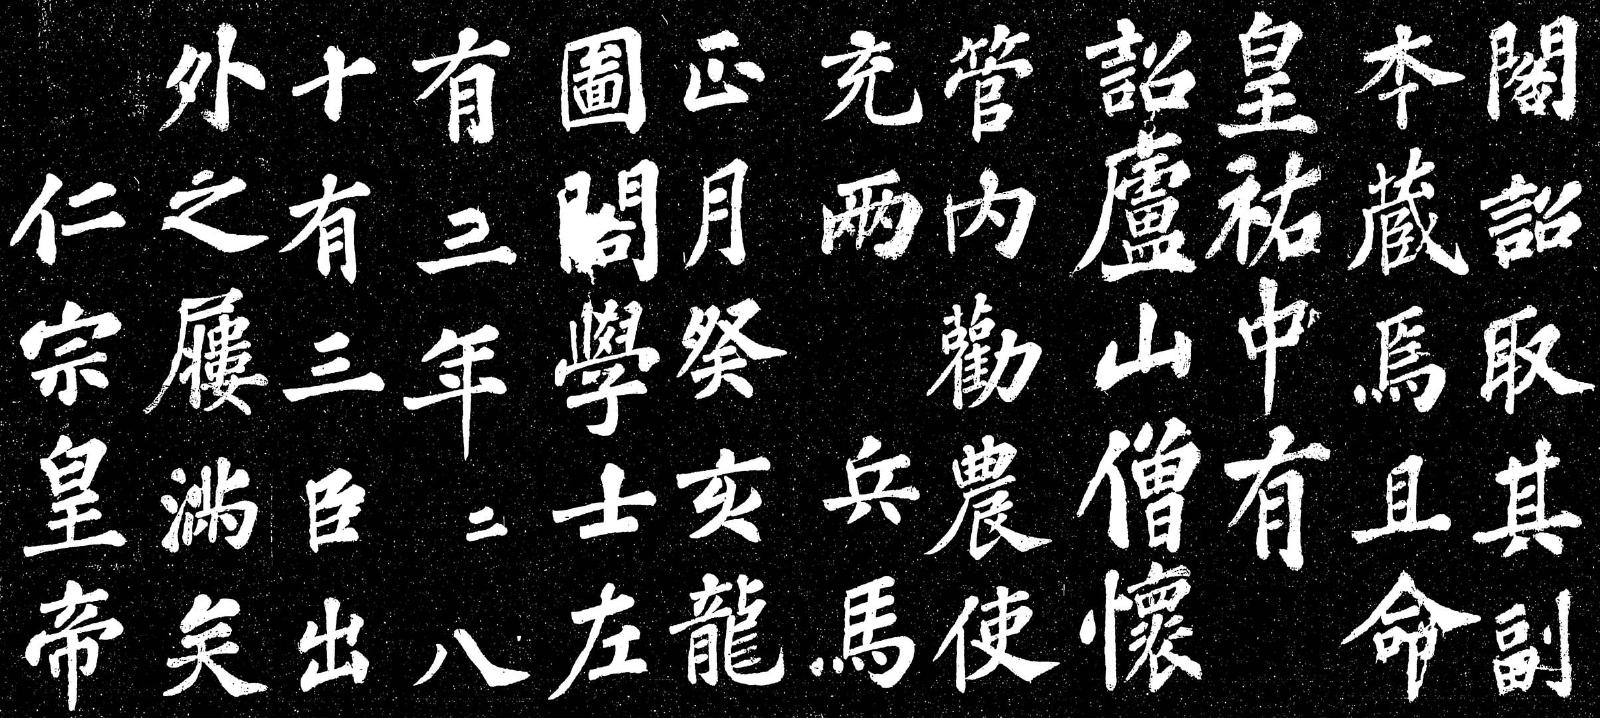 閣詔取其副
本藏焉且命
皇祐中有
詔廬山僧懷
管内勸農使
充两兵馬
正月癸亥龍
圖閣學士左
有三年二八
十有三臣出
外之屨滿矣
仁宗皇帝